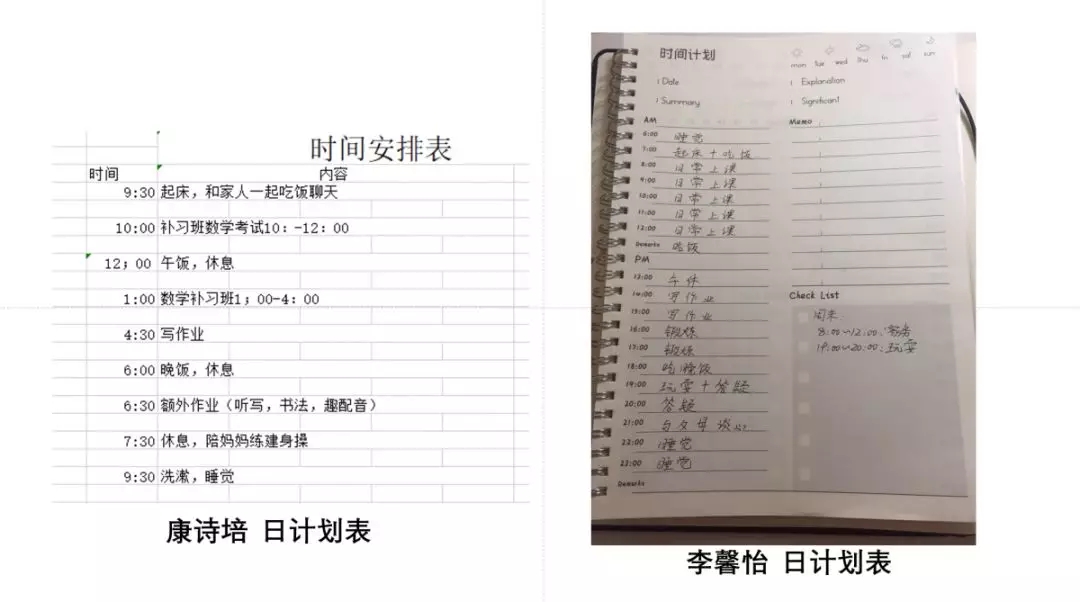 时间安排表
时间 内容
9:30 起床，和家人一起吃饭聊天
10:00 补习班数学考试10：-12：00
12；00 午饭，休息
1:00 数学补习班1；00-4：00
4:30 写作业
6:00 晚饭，休息
6:30 额外作业（听写，书法，趣配音）
7:30 休息，陪妈妈练建身操
9:30 洗漱，睡觉
康诗培 日计划表
时间计划
mon tue wed thu fri sat sun
Date
Summary
Explanation
Significant
AM
6:00 睡觉
7:00 起床+吃饭
8:00 日常上课
9:00 日常上课
10:00 日常上课
11:00 日常上课
12:00 日常上课
Remarks 吃饭
PM
13:00 午休
14:00 写作业
15:00 写作业
16:00 锻炼
17:00 锻炼
18:00 吃晚饭
19:00 玩耍+答疑
20:00 答疑
21:00 与父母谈心
22:00 睡觉
23:00 睡觉
Remarks
Memo
Check List
周末
8:00~12:00:家务
19:00~20:00:玩耍
李馨怡 日计划表